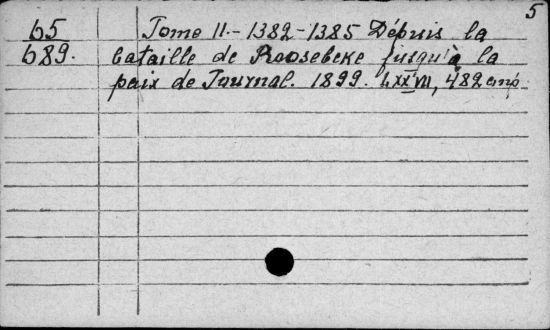 5
65
689.
Tome 11.-1382-1385 Dépuis la
bataille de Roosebeke jusqu'à la
paix de Tournal. 1899. LXXVII, 482 стр